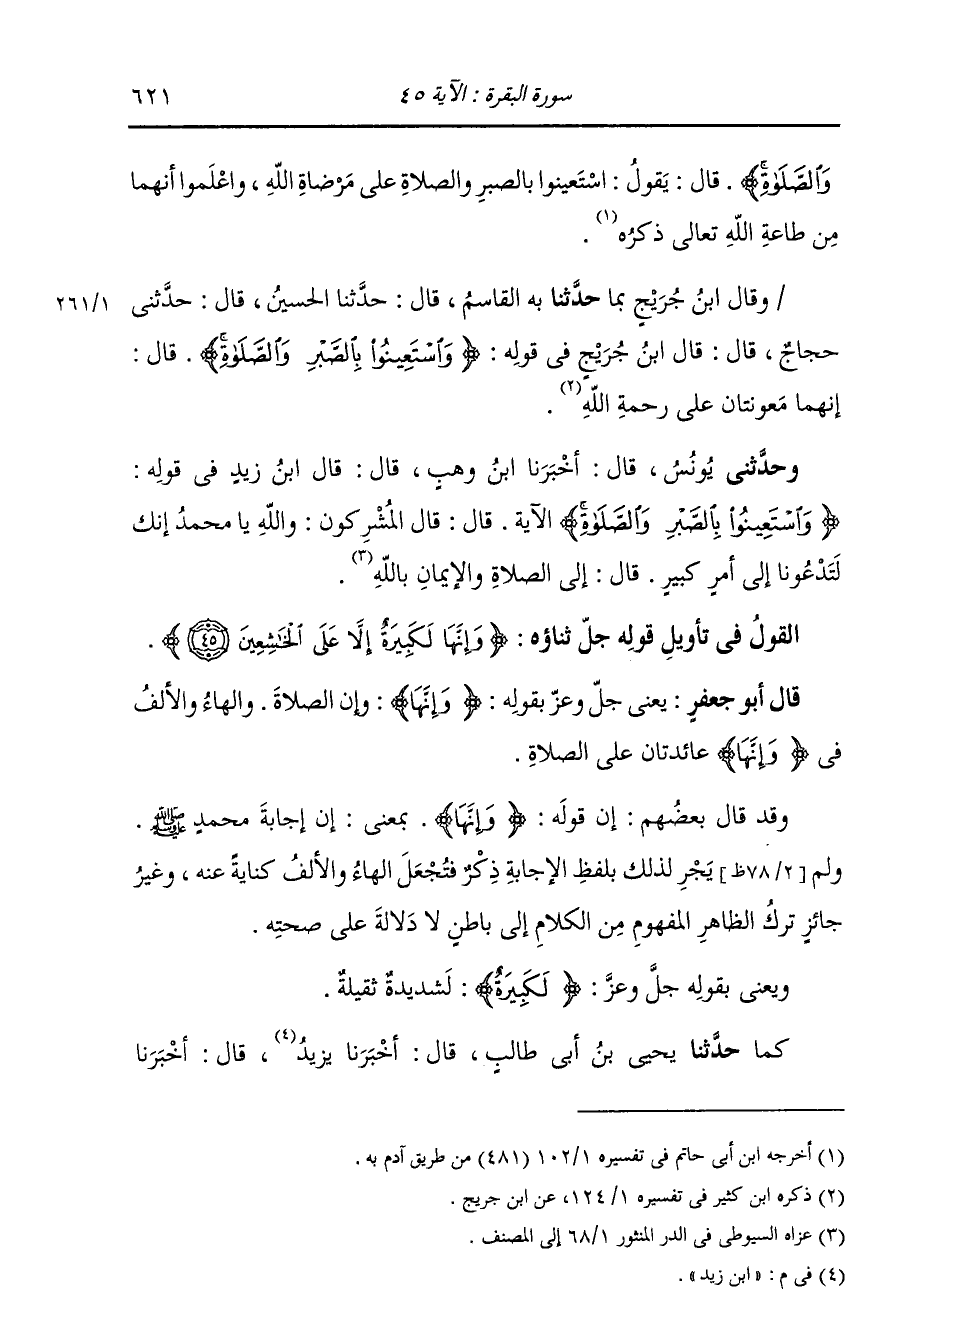 سورة البقرة : الآية ٤٥
٦٢١
وَٱلصَّلَوٰةِۚ﴾ . قال : يَقولُ : اسْتَعينوا بالصبرِ والصلاةِ على مَرْضاةِ اللَّهِ ، واعْلَموا أنهما
مِن طاعةِ اللَّهِ تعالى ذكرُه(١) .
/ وقال ابنُ جُرَيْجٍ بما حدَّثنا به القاسمُ ، قال : حدَّثنا الحسينُ ، قال : حدَّثنى
٢٦١/١
حجاجٌ ، قال : قال ابنُ جُرَيْجٍ فى قولِه : ﴿ وَٱسْتَعِينُوا۟ بِٱلصَّبْرِ وَٱلصَّلَوٰةِۚ﴾ . قال :
إنهما مَعونتان على رحمةِ اللَّهِ(٢) .
وحدَّثنى يُونُسُ ، قال : أخْبَرَنا ابنُ وهبٍ ، قال : قال ابنُ زيدٍ فى قولِه :
﴿ وَٱسْتَعِينُوا۟ بِٱلصَّبْرِ وَٱلصَّلَوٰةِۚ﴾ الآية . قال : قال المُشْرِكون : واللَّهِ يا محمدُ إنك
لَتَدْعُونا إلى أمرٍ كبيرٍ . قال : إلى الصلاةِ والإيمانِ باللَّهِ(٣) .
القولُ فى تأويلِ قولِه جلّ ثناؤه : ﴿ وَإِنَّهَا لَكَبِيرَةٌ إِلَّا عَلَى ٱلْخَٰشِعِينَ ٤٥ ﴾ .
قال أبو جعفرٍ : يعنى جلّ وعزّ بقولِه : ﴿ وَإِنَّهَا﴾ : وإن الصلاةَ . والهاءُ والألفُ
فى ﴿ وَإِنَّهَا﴾ عائدتان على الصلاةِ .
وقد قال بعضُهم : إن قولَه : ﴿ وَإِنَّهَا﴾ . بمعنى : إن إجابةَ محمدٍ ﷺ .
ولم [٧٨/٢ظ] يَجْرِ لذلك بلفظِ الإجابةِ ذِكْرٌ فتُجْعَلَ الهاءُ والألفُ كنايةً عنه ، وغيرُ
جائزٍ تركُ الظاهرِ المفهومِ مِن الكلامِ إلى باطنٍ لا دَلالةَ على صحتِه .
ويعنى بقولِه جلَّ وعزَّ : ﴿ لَكَبِيرَةٌ﴾ : لَشديدةٌ ثقيلةٌ .
كما حدَّثنا يحيى بنُ أبى طالبٍ ، قال : أخْبَرَنا يزيدُ(٤) ، قال : أخْبَرَنا
(١) أخرجه ابن أبى حاتم فى تفسيره ١٠٢/١ (٤٨١) من طريق آدم به .
(٢) ذكره ابن كثير فى تفسيره ١٢٤/١، عن ابن جريج .
(٣) عزاه السيوطى فى الدر المنثور ٦٨/١ إلى المصنف .
(٤) فى م : « ابن زيد » .